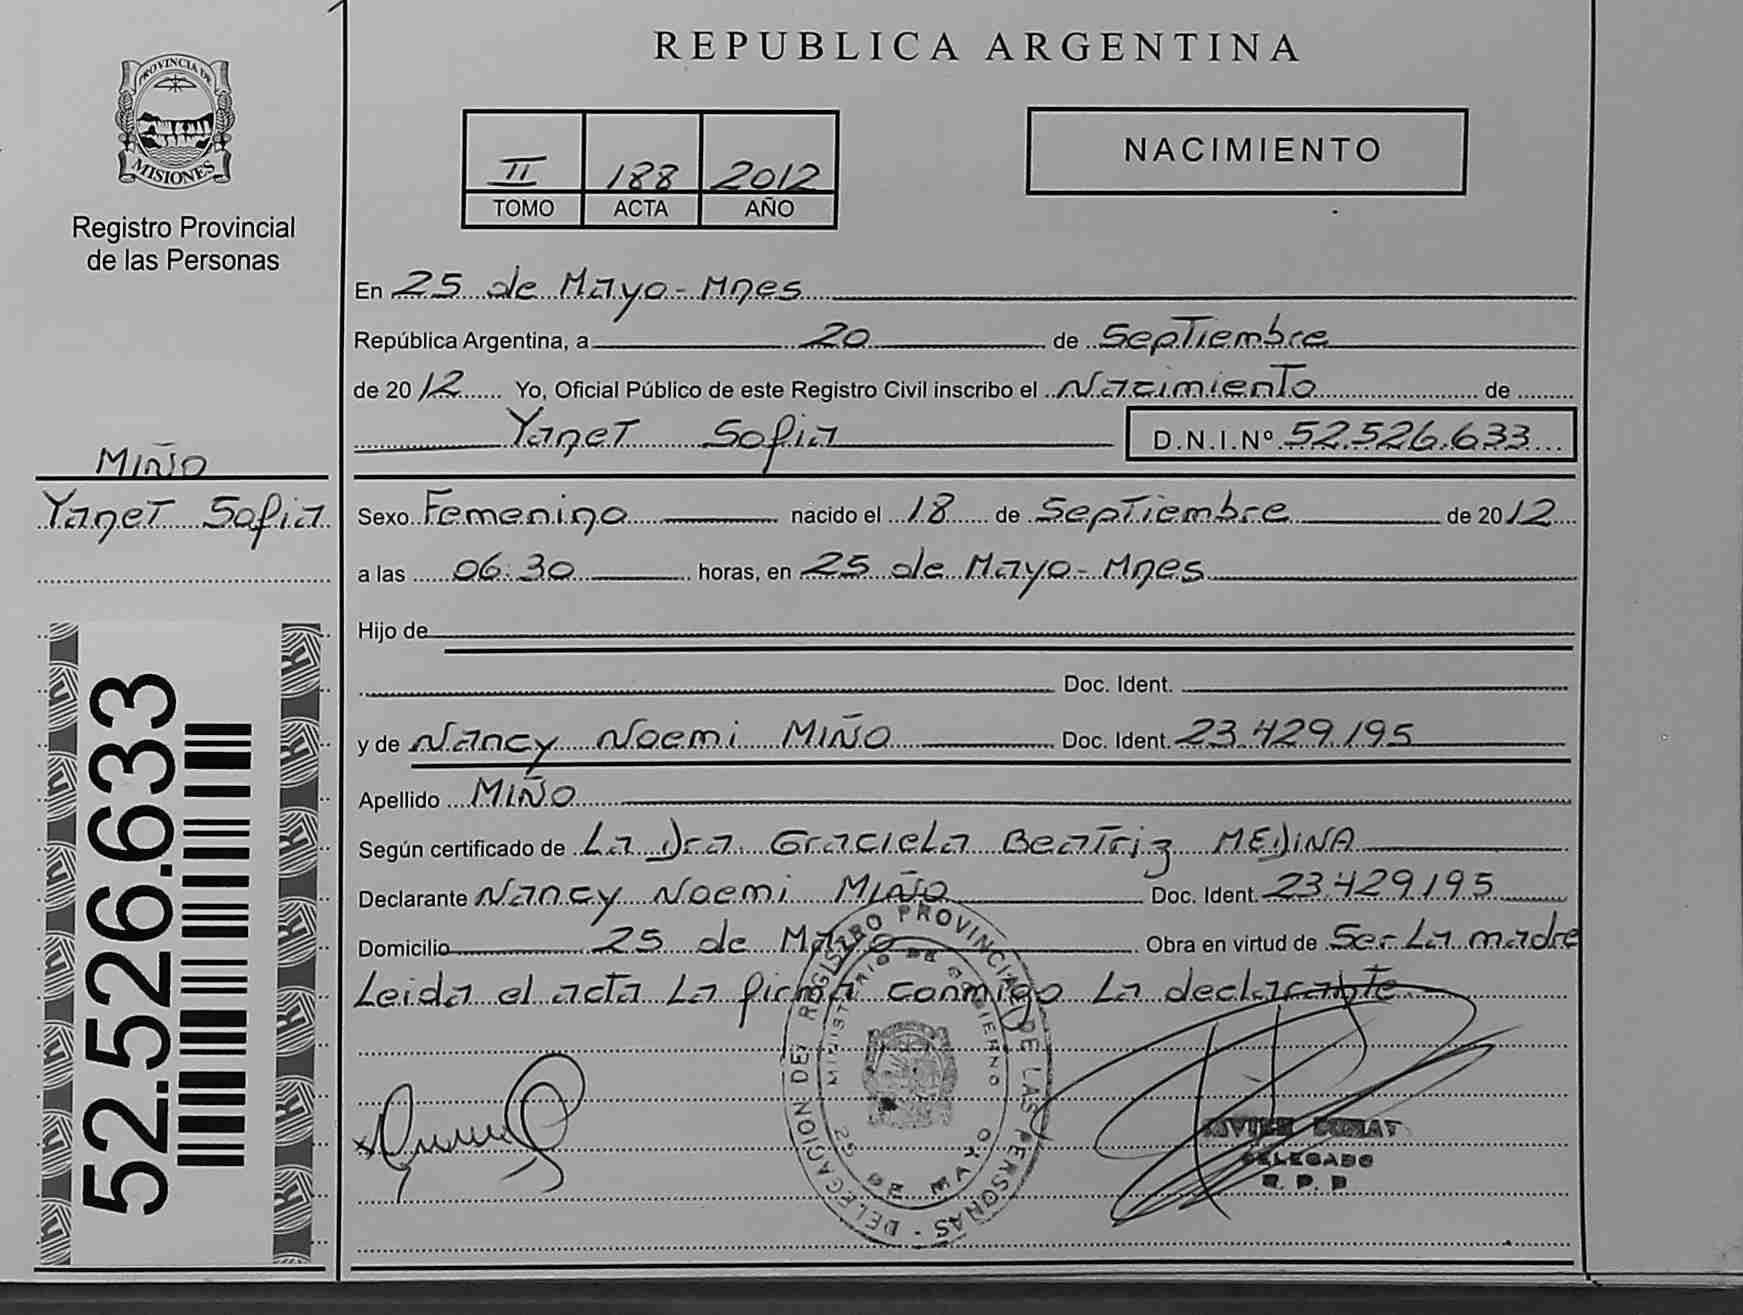 PROVINCIA DE
MISIONES
Registro Provincial
de las Personas
MIÑO
Yanet Sofia
52.526.633
REPUBLICA ARGENTINA
II 188 2012
TOMO ACTA AÑO
NACIMIENTO
En 25 de Mayo - Mnes
República Argentina, a 20 de Septiembre
de 2012 Yo, Oficial Público de este Registro Civil inscribo el Nacimiento de
Yanet Sofia D.N.I.Nº 52.526.633
Sexo Femenino nacido el 18 de Septiembre de 2012
a las 06:30 horas, en 25 de Mayo - Mnes
Hijo de
Doc. Ident.
y de Nancy Noemi MIÑO Doc. Ident. 23.429.195
Apellido MIÑO
Según certificado de La Dra. Graciela Beatriz MEDINA
Declarante Nancy Noemi MIÑO Doc. Ident. 23.429.195
Domicilio 25 de Mayo Obra en virtud de Ser La madre
Leida el acta La firma conmigo La declarante
REGISTRO PROVINCIAL DE LAS PERSONAS - DELEGACION DE
MINISTERIO DE GOBIERNO
25 DE MAYO
DELEGADO
R. P. P